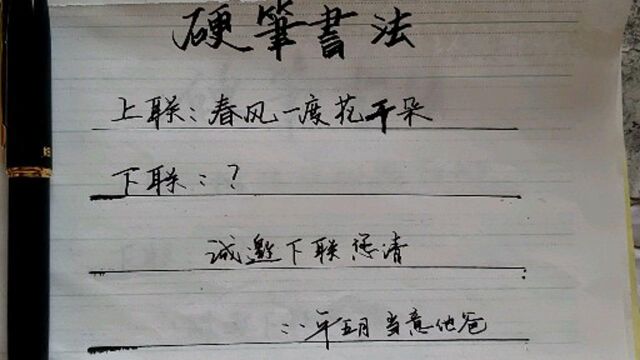 硬筆書法
上联：春风一度花千朵
下联：？
诚邀下联恁请
二二年五月 当意他爸